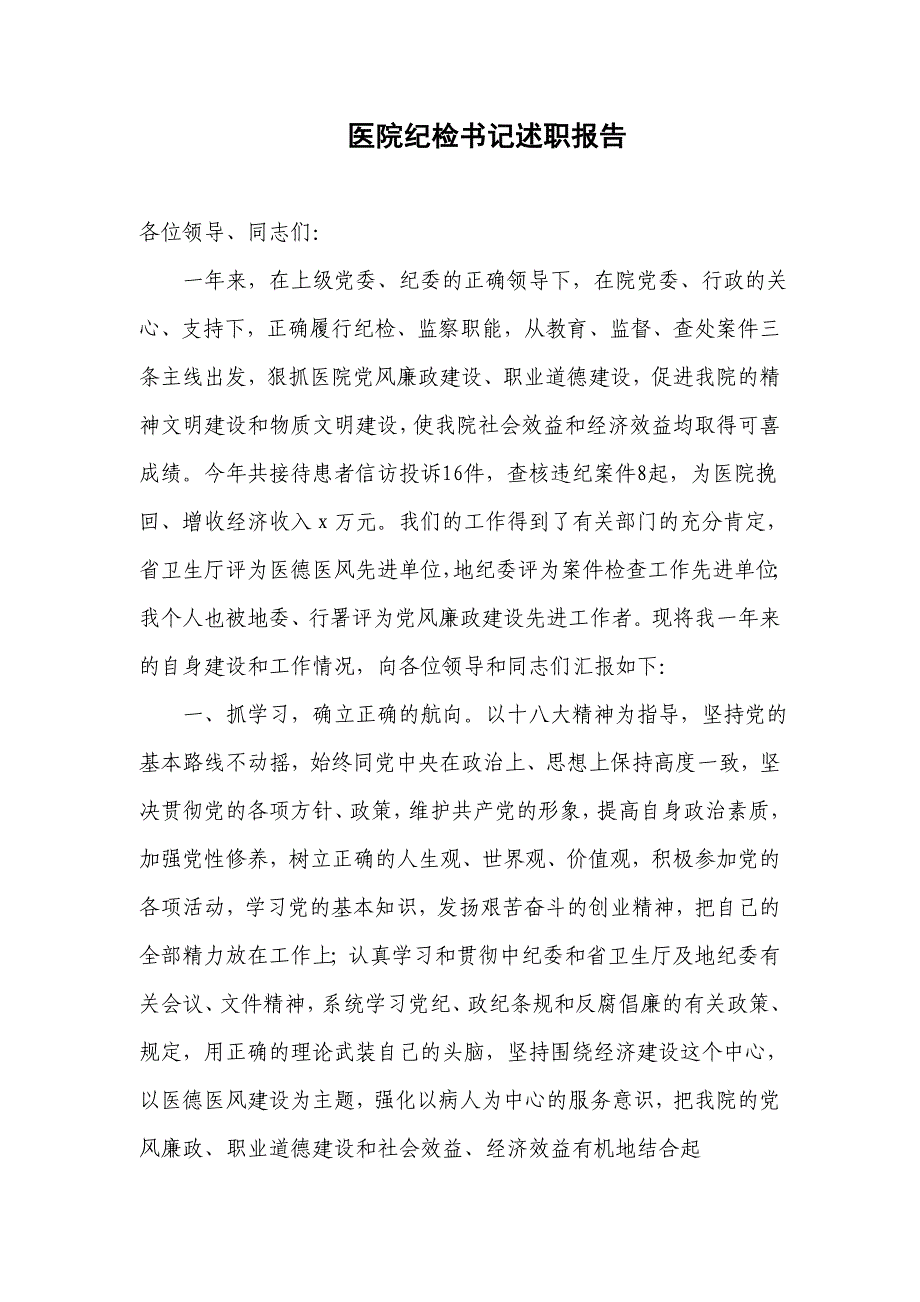 医院纪检书记述职报告
各位领导、同志们：
一年来，在上级党委、纪委的正确领导下，在院党委、行政的关
心、支持下，正确履行纪检、监察职能，从教育、监督、查处案件三
条主线出发，狠抓医院党风廉政建设、职业道德建设，促进我院的精
神文明建设和物质文明建设，使我院社会效益和经济效益均取得可喜
成绩。今年共接待患者信访投诉16件，查核违纪案件8起，为医院挽
回、增收经济收入 x 万元。我们的工作得到了有关部门的充分肯定，
省卫生厅评为医德医风先进单位，地纪委评为案件检查工作先进单位；
我个人也被地委、行署评为党风廉政建设先进工作者。现将我一年来
的自身建设和工作情况，向各位领导和同志们汇报如下：
一、抓学习，确立正确的航向。以十八大精神为指导，坚持党的
基本路线不动摇，始终同党中央在政治上、思想上保持高度一致，坚
决贯彻党的各项方针、政策，维护共产党的形象，提高自身政治素质，
加强党性修养，树立正确的人生观、世界观、价值观，积极参加党的
各项活动，学习党的基本知识，发扬艰苦奋斗的创业精神，把自己的
全部精力放在工作上；认真学习和贯彻中纪委和省卫生厅及地纪委有
关会议、文件精神，系统学习党纪、政纪条规和反腐倡廉的有关政策、
规定，用正确的理论武装自己的头脑，坚持围绕经济建设这个中心，
以医德医风建设为主题，强化以病人为中心的服务意识，把我院的党
风廉政、职业道德建设和社会效益、经济效益有机地结合起